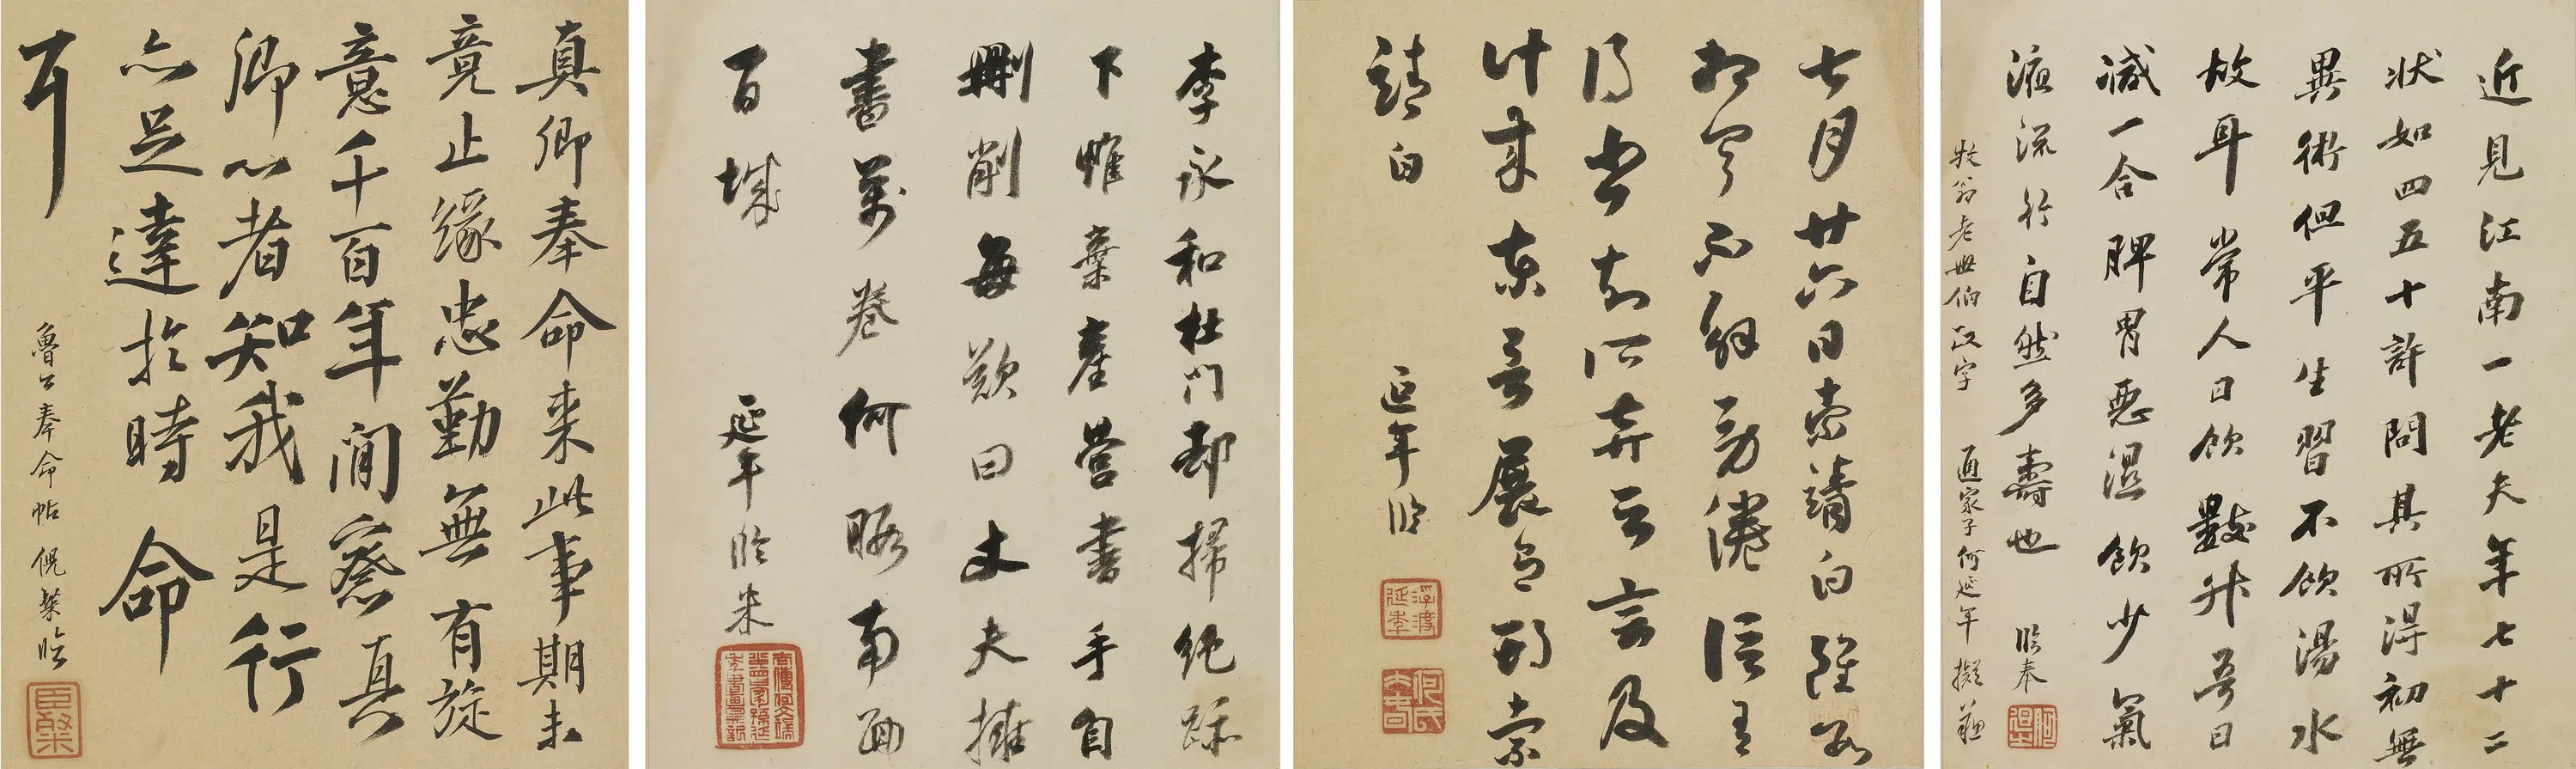 真卿奉命来此事期未
竟止緣忠勤無有旋
意千百年間察真
卿心者知我是行
亦足達於時命
耳
魯公奉命帖 倪粲臨
李永和杜門却掃絕跡
下帷棄產營書手自
刪削每歎曰丈夫擁
書萬卷何暇南面
百城
延年臨米
七月廿六日索靖白雖數
相聞不解勞倦信至
得書知所弃云言及
計來東言展有期索
靖白
延年臨
近見江南一老夫年七十二
狀如四五十許問其所得初無
異術但平生習不飲湯水
故耳常人日飲數升吾日
減一合脾胃惡濕飲少氣
液流行自然多壽也
臨奉
牧翁老世伯政字 通家子何延年擬蘇